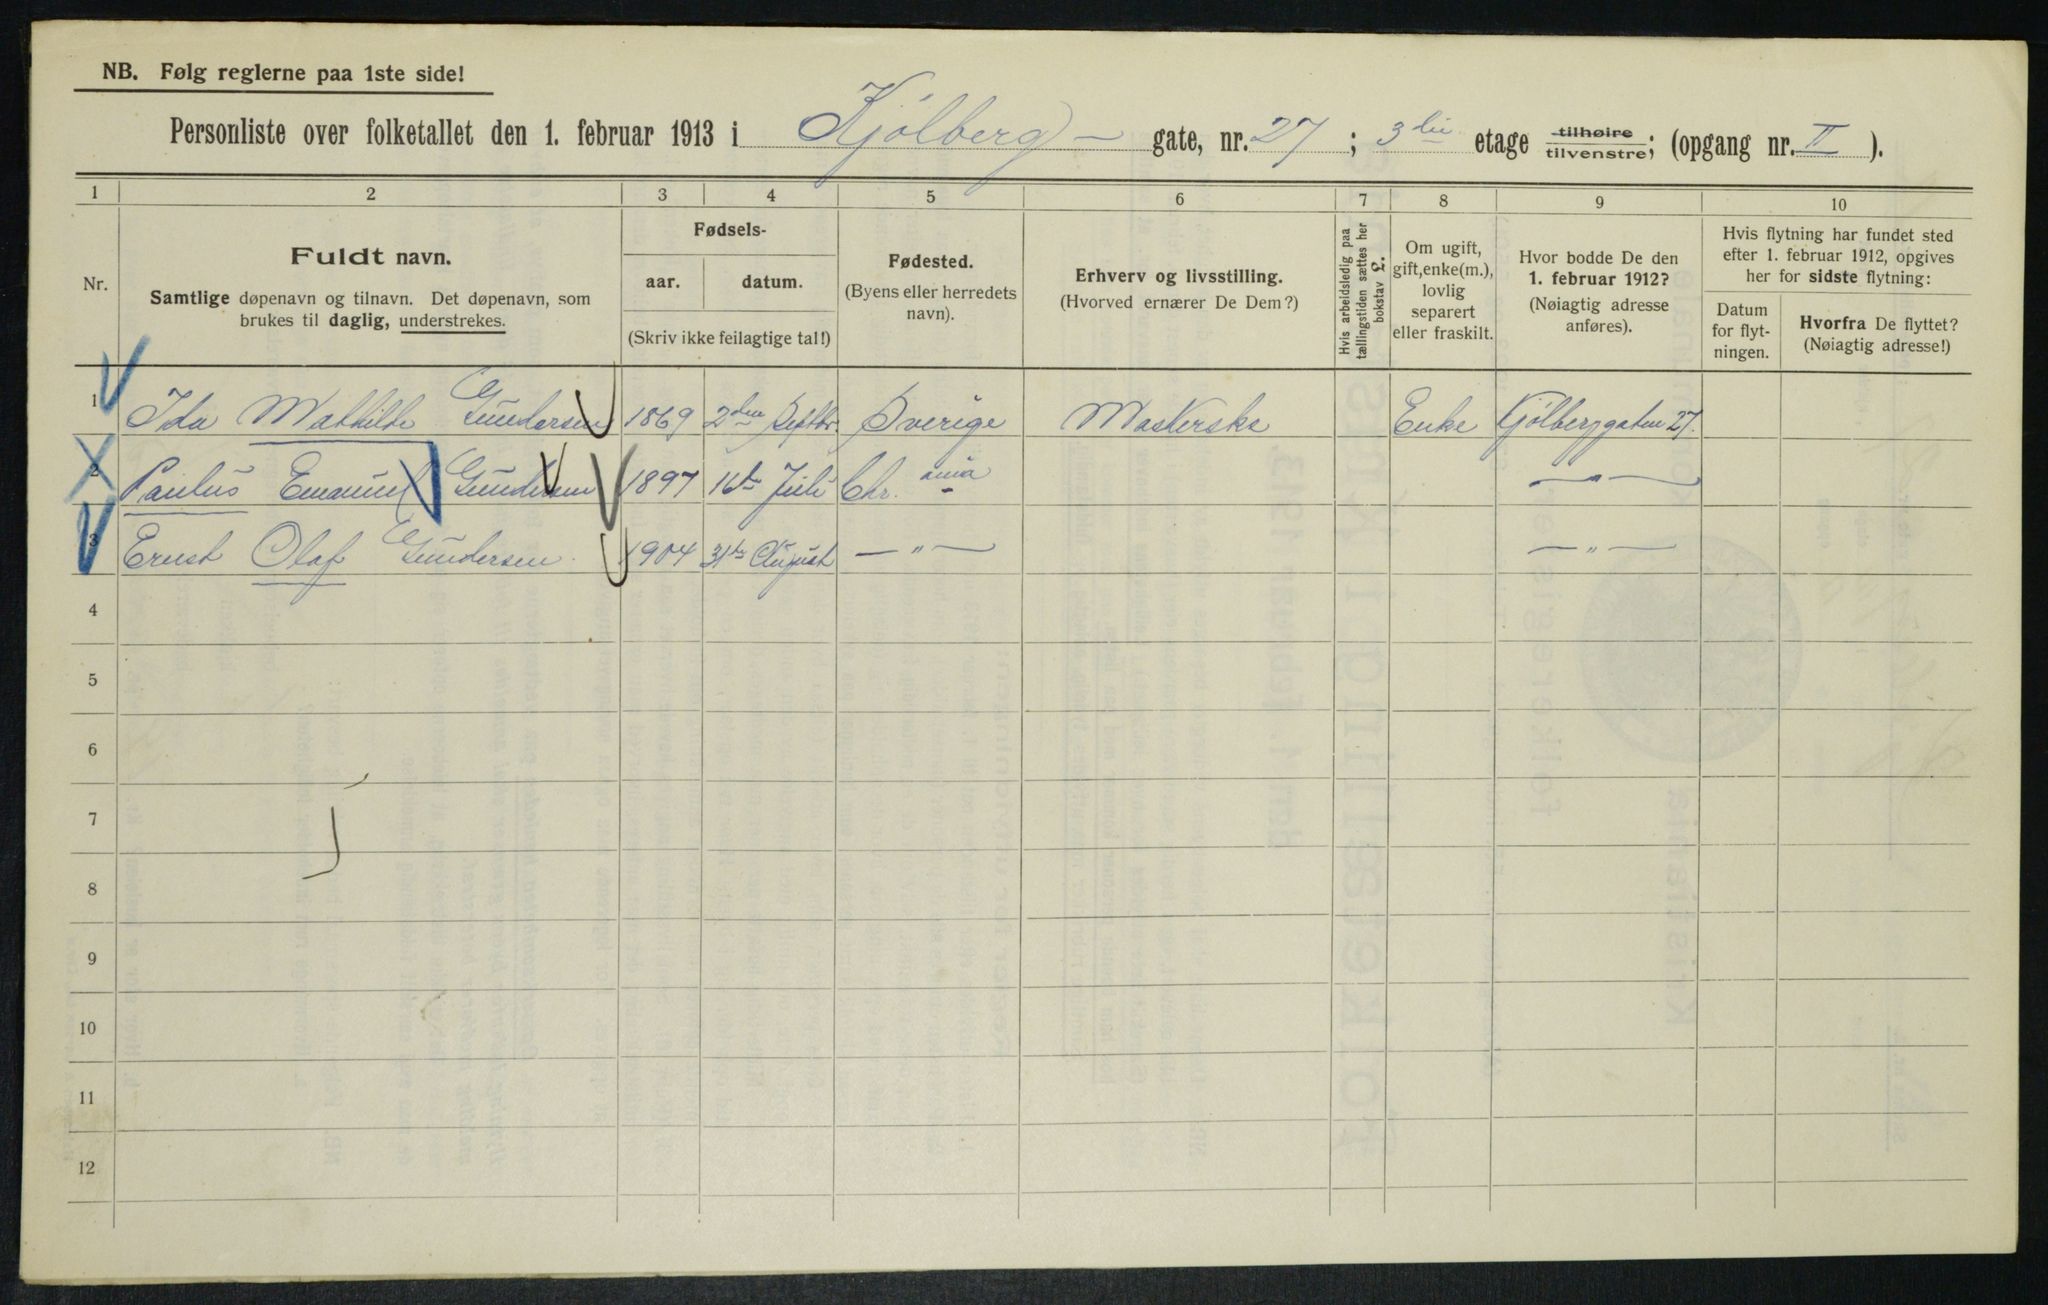 NB. Følg reglerne paa 1ste side!
Personliste over folketallet den 1. februar 1913 i Kjølberg- gate, nr. 27; 3die etage tilhøire tilvenstre; (opgang nr. II).
1 2 3 4 5 6 7 8 9 10
Nr.
Fuldt navn.
Samtlige døpenavn og tilnavn. Det døpenavn, som
brukes til daglig, understrekes.
Fødsels-
aar. datum.
(Skriv ikke feilagtige tal!)
Fødested.
(Byens eller herredets
navn).
Erhverv og livsstilling.
(Hvorved ernærer De Dem?)
Hvis arbeidsledig paa
tællingstiden sættes her
bokstav L.
Om ugift,
gift, enke(m.),
lovlig
separert
eller fraskilt.
Hvor bodde De den
1. februar 1912?
(Nøiagtig adresse
anføres).
Hvis flytning har fundet sted
efter 1. februar 1912, opgives
her for sidste flytning:
Datum
for flyt-
ningen.
Hvorfra De flyttet?
(Nøiagtig adresse!)
1 Ida Mathilde Gundersen 1869 2den Septbr. Sverige Maskerske Enke Kjølberggaten 27.
2 Paulus Emanuel Gundersen 1897 16de Juli Chr.ania — " —
3 Ernst Olaf Gundersen 1904 31te August — " — — " —
4
5
6
7
8
9
10
11
12